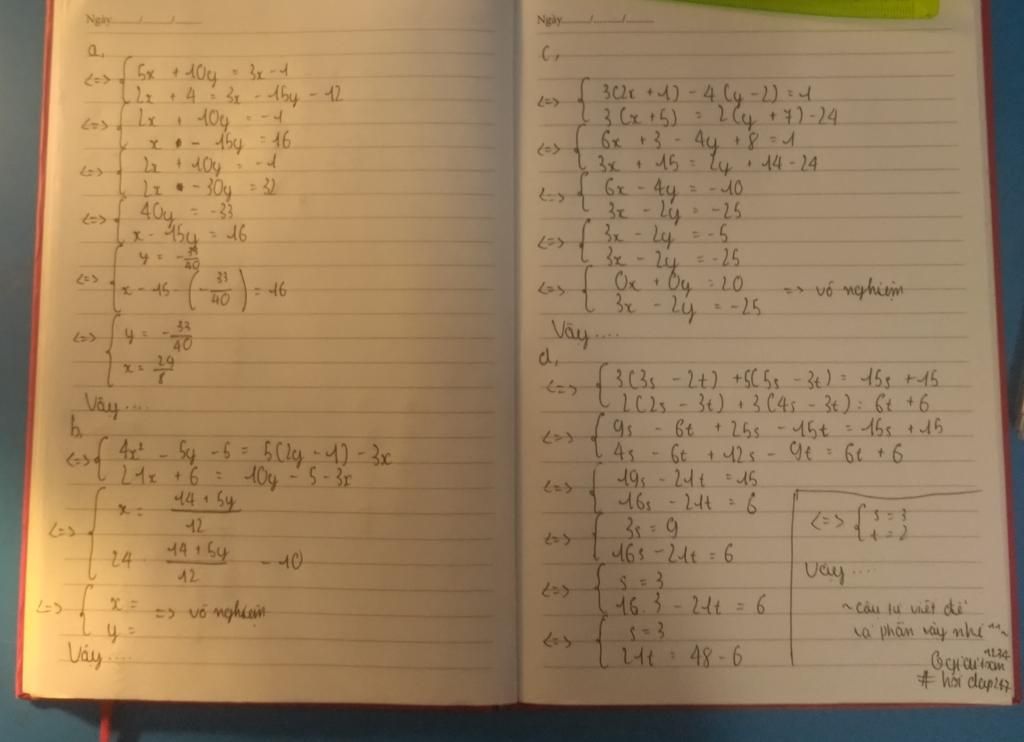 Ngày....../....../......
a,
<=> { 5x + 10y = 3x - 1
2x + 4 = 3x - 15y - 12
<=> { 2x + 10y = -1
x - 15y = 16
<=> { 2x + 10y = -1
2x - 30y = 32
<=> { 40y = -33
x - 15y = 16
<=> { y = -33/40
x - 15 - (-33/40) = 16
<=> { y = -33/40
x = 29/8
Vậy ....
b,
<=> { 4x² - 5y - 5 = 5(2y - 1) - 3x
21x + 6 = 10y - 5 - 3x
<=> { x = (14 + 5y)/12
24 · (14 + 5y)/12 - 10
<=> { x = => vô nghiệm
y =
Vậy ....
Ngày....../....../......
c,
<=> { 3(2x + 1) - 4(y - 2) = 1
3(x + 5) = 2(y + 7) - 24
<=> { 6x + 3 - 4y + 8 = 1
3x + 15 = 2y + 14 - 24
<=> { 6x - 4y = -10
3x - 2y = -25
<=> { 3x - 2y = -5
3x - 2y = -25
<=> { 0x + 0y = 20 => vô nghiệm
3x - 2y = -25
Vậy ....
d,
<=> { 3(3s - 2t) + 5(5s - 3t) = 15s + 15
2(2s - 3t) + 3(4s - 3t) = 6t + 6
<=> { 9s - 6t + 25s - 15t = 15s + 15
4s - 6t + 12s - 9t = 6t + 6
<=> { 19s - 21t = 15
16s - 21t = 6
<=> { 3s = 9
16s - 21t = 6
<=> { s = 3
16.3 - 21t = 6
<=> { s = 3
21t = 48 - 6
<=> { s = 3
t = 2
Vậy ....
~ cậu tự viết đề
và phần vậy nhé ^^~
1234
# hoi dap247